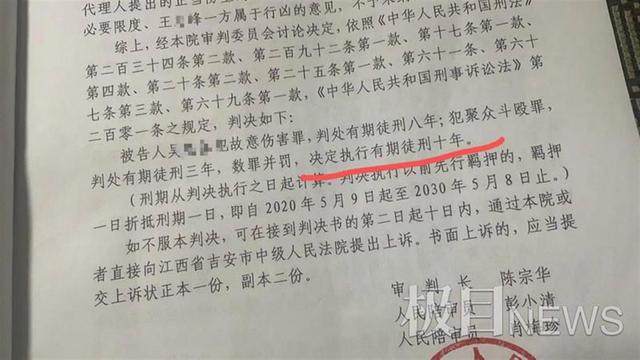 代理人提出的正当防卫
必要限度、王峰一方属于行凶的意见,不予
综上,经本院审判委员会讨论决定,依照《中华人民共和国刑
第二百三十四条第二款、第二百九十二条第一款、第十七条第一
款、第四款、第二十条第二款、第二十五条第一款、第六十
七条第三款、第六十九条第一款,《中华人民共和国刑事诉讼法》第
二百零一条之规定,判决如下:
被告人吴犯故意伤害罪,判处有期徒刑八年;犯聚众斗殴罪,
判处有期徒刑三年,数罪并罚,决定执行有期徒刑十年。
(刑期从判决执行之日起计算。判决执行以前先行羁押的,羁押
一日折抵刑期一日,即自2020年5月9日起至2030年5月8日止。)
如不服本判决,可在接到判决书的第二日起十日内,通过本院或
者直接向江西省吉安市中级人民法院提出上诉。书面上诉的,应当提
交上诉状正本一份,副本二份。
审判长 陈宗华
人民陪审员 彭小清
人民陪审员 肖
极目NEWS